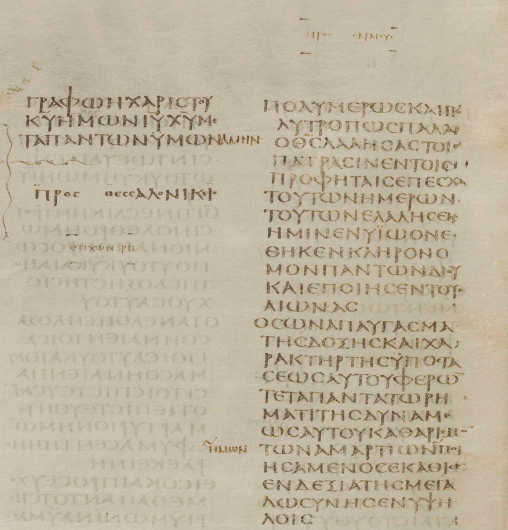 ΠΡΟϹ ΕΒΡΑΙΟΥϹ
ΓΡΑΦΩΗΧΑΡΙϹΤΟΥ
ΚΥΗΜΩΝΙΥΧΥΜΕ
ΤΑΠΑΝΤΩΝΥΜΩΝΑΜΗΝ
ΠΡΟϹ ΘΕϹϹΑΛΟΝΙΚΙϹ
ΠΟΛΥΜΕΡΩϹΚΑΙΠΟ
ΛΥΤΡΟΠΩϹΠΑΛΑΙ
ΟΘϹΛΑΛΗϹΑϹΤΟΙϹ
ΠΑΤΡΑϹΙΝΕΝΤΟΙϹ
ΠΡΟΦΗΤΑΙϹΕΠΕϹΧΑ
ΤΟΥΤΩΝΗΜΕΡΩΝ
ΤΟΥΤΩΝΕΛΑΛΗϹΕΝ
ΗΜΙΝΕΝΥΙΩΟΝΕ
ΘΗΚΕΝΚΛΗΡΟΝΟ
ΜΟΝΠΑΝΤΩΝΔΙΟΥ
ΚΑΙΕΠΟΙΗϹΕΝΤΟΥϹ
ΑΙΩΝΑϹ
ΟϹΩΝΑΠΑΥΓΑϹΜΑ
ΤΗϹΔΟΞΗϹΚΑΙΧΑ
ΡΑΚΤΗΡΤΗϹΥΠΟϹΤΑ
ϹΕΩϹΑΥΤΟΥΦΕΡΩ̅
ΤΕΤΑΠΑΝΤΑΤΩΡΗ
ΜΑΤΙΤΗϹΔΥΝΑΜΕ
ΩϹΑΥΤΟΥΚΑΘΑΡΙϹΜΟ̅
ΗΜΩΝ
ΤΩΝΑΜΑΡΤΙΩΝΠΟΙ
ΗϹΑΜΕΝΟϹΕΚΑΘΙϹΕ
ΕΝΔΕΞΙΑΤΗϹΜΕΓΑ
ΛΩϹΥΝΗϹΕΝΥΨΗ
ΛΟΙϹ